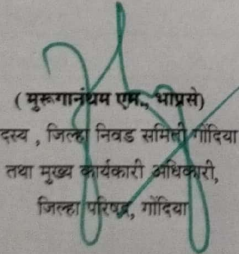 ( मुरूगानंथम एम., भाप्रसे)
दस्य , जिल्हा निवड समिती गोंदिया
तथा मुख्य कार्यकारी अधिकारी,
जिल्हा परिषद, गोंदिया